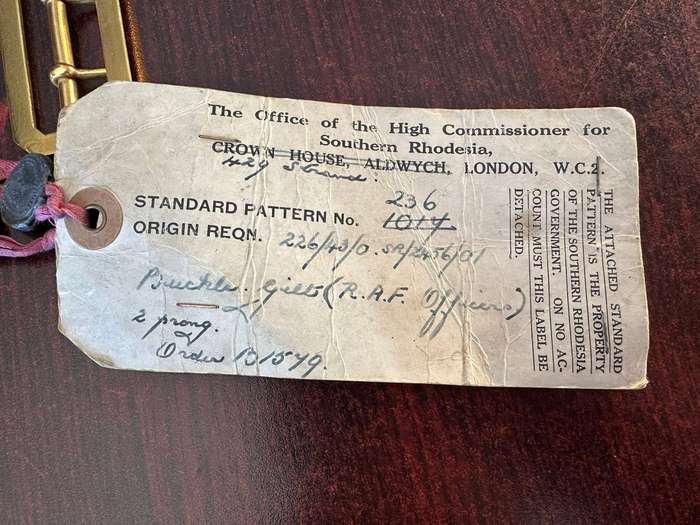 The Office of the High Commissioner for
Southern Rhodesia,
CROWN HOUSE, ALDWYCH, LONDON, W.C.2.
429 Strand.
236
STANDARD PATTERN No. 1014
ORIGIN REQN. 226/43/0. SR/2456/01
Buckle. Gilt (R.A.F. Officers)
2 prong.
Order B1579.
THE ATTACHED STANDARD
PATTERN IS THE PROPERTY
OF THE SOUTHERN RHODESIA
GOVERNMENT. ON NO AC-
COUNT MUST THIS LABEL BE
DETACHED.